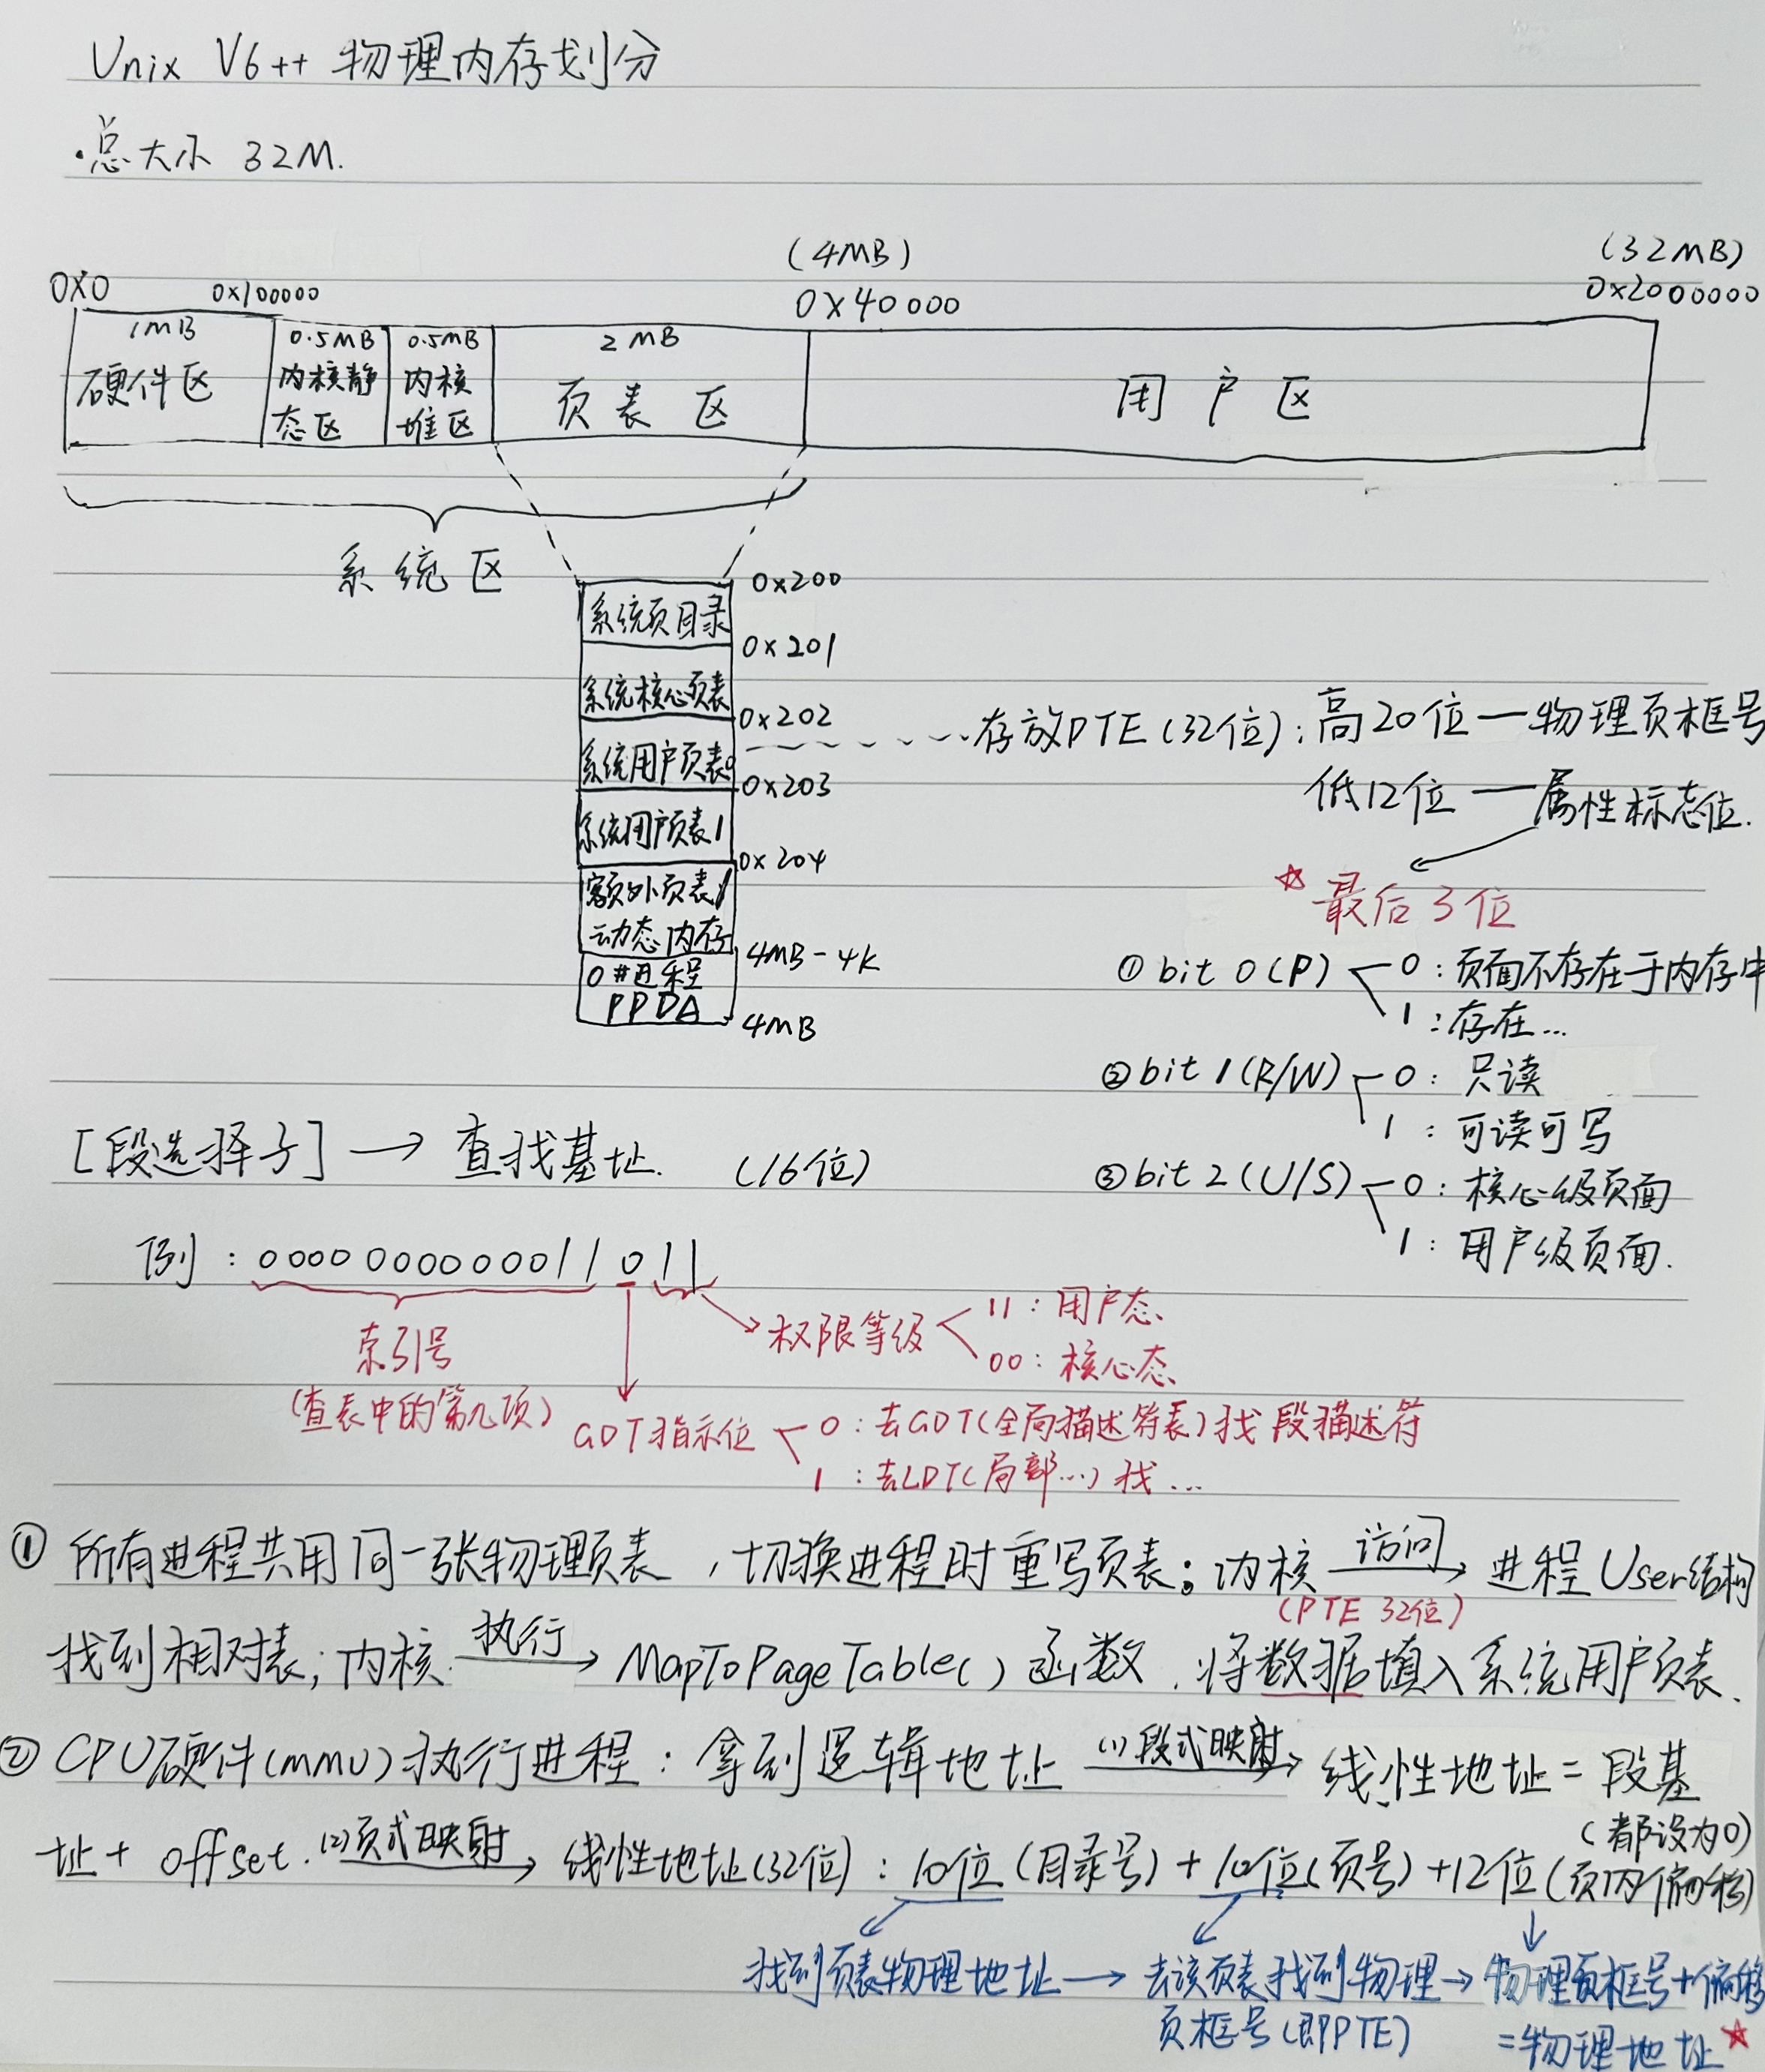 Unix V6++ 物理内存划分
·总大小 32M.
(4MB) (32MB)
0X0 0x100000 0X40000 0x2000000
1MB 0.5MB 0.5MB 2 MB
硬件区 内核静态区 内核堆区 页表区 用户区
系统区
0x200
系统页目录
0x201
系统核心页表
0x202
系统用户页表0 存放PTE(32位):高20位—物理页框号
0x203
低12位—属性标志位.
系统用户页表1
0x204
☆最后3位
额外页表/
动态内存
4MB-4K
0#进程
PPDA
4MB
①bit 0(P) 0:页面不存在于内存中
1:存在...
②bit 1(R/W) 0:只读
1:可读可写
③bit 2(U/S) 0:核心级页面
1:用户级页面.
[段选择子]→查找基址. (16位)
例:0000000000011 0 11
权限等级 11:用户态
00:核心态
索引号
(查表中的第几项)
GDT指示位 0:去GDT(全局描述符表)找段描述符
1:去LDT(局部...)找...
① 所有进程共用同一张物理页表,切换进程时重写页表;内核 访问→ 进程User结构
(PTE 32位)
找到相对表;内核 执行→ MapToPageTable()函数.将数据填入系统用户页表.
② CPU硬件(mmu)执行进程:拿到逻辑地址 (1)段式映射→ 线性地址=段基
(都设为0)
址+offset.(2)页式映射→ 线性地址(32位):10位(目录号)+10位(页号)+12位(页内偏移)
找到页表物理地址→去该页表找到物理→物理页框号+偏移
页框号(即PTE) =物理地址☆